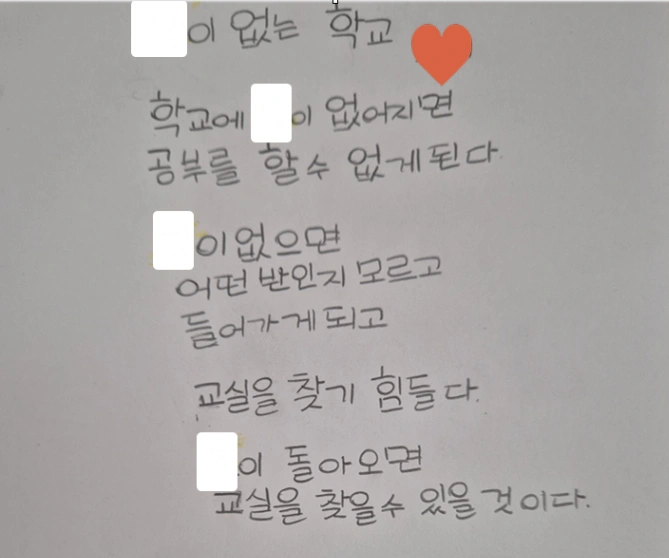 이 없는 학교
학교에 이 없어지면
공부를 할 수 없게 된다.
이 없으면
어떤 반인지 모르고
들어가게 되고
교실을 찾기 힘들다.
이 돌아오면
교실을 찾을 수 있을 것이다.